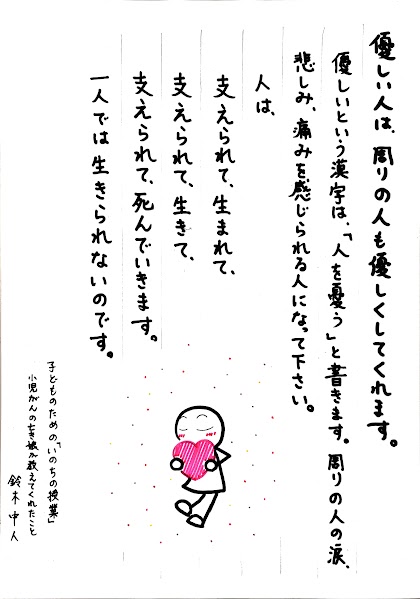 優しい人は、周りの人も優しくしてくれます。
優しいという漢字は、「人を憂う」と書きます。周りの人の涙、
悲しみ、痛みを感じられる人になって下さい。
人は、
支えられて、生まれて、
支えられて、生きて、
支えられて、死んでいきます。
一人では生きられないのです。
子どものための「いのちの授業」
小児がんの亡き娘が教えてくれたこと
鈴木中人